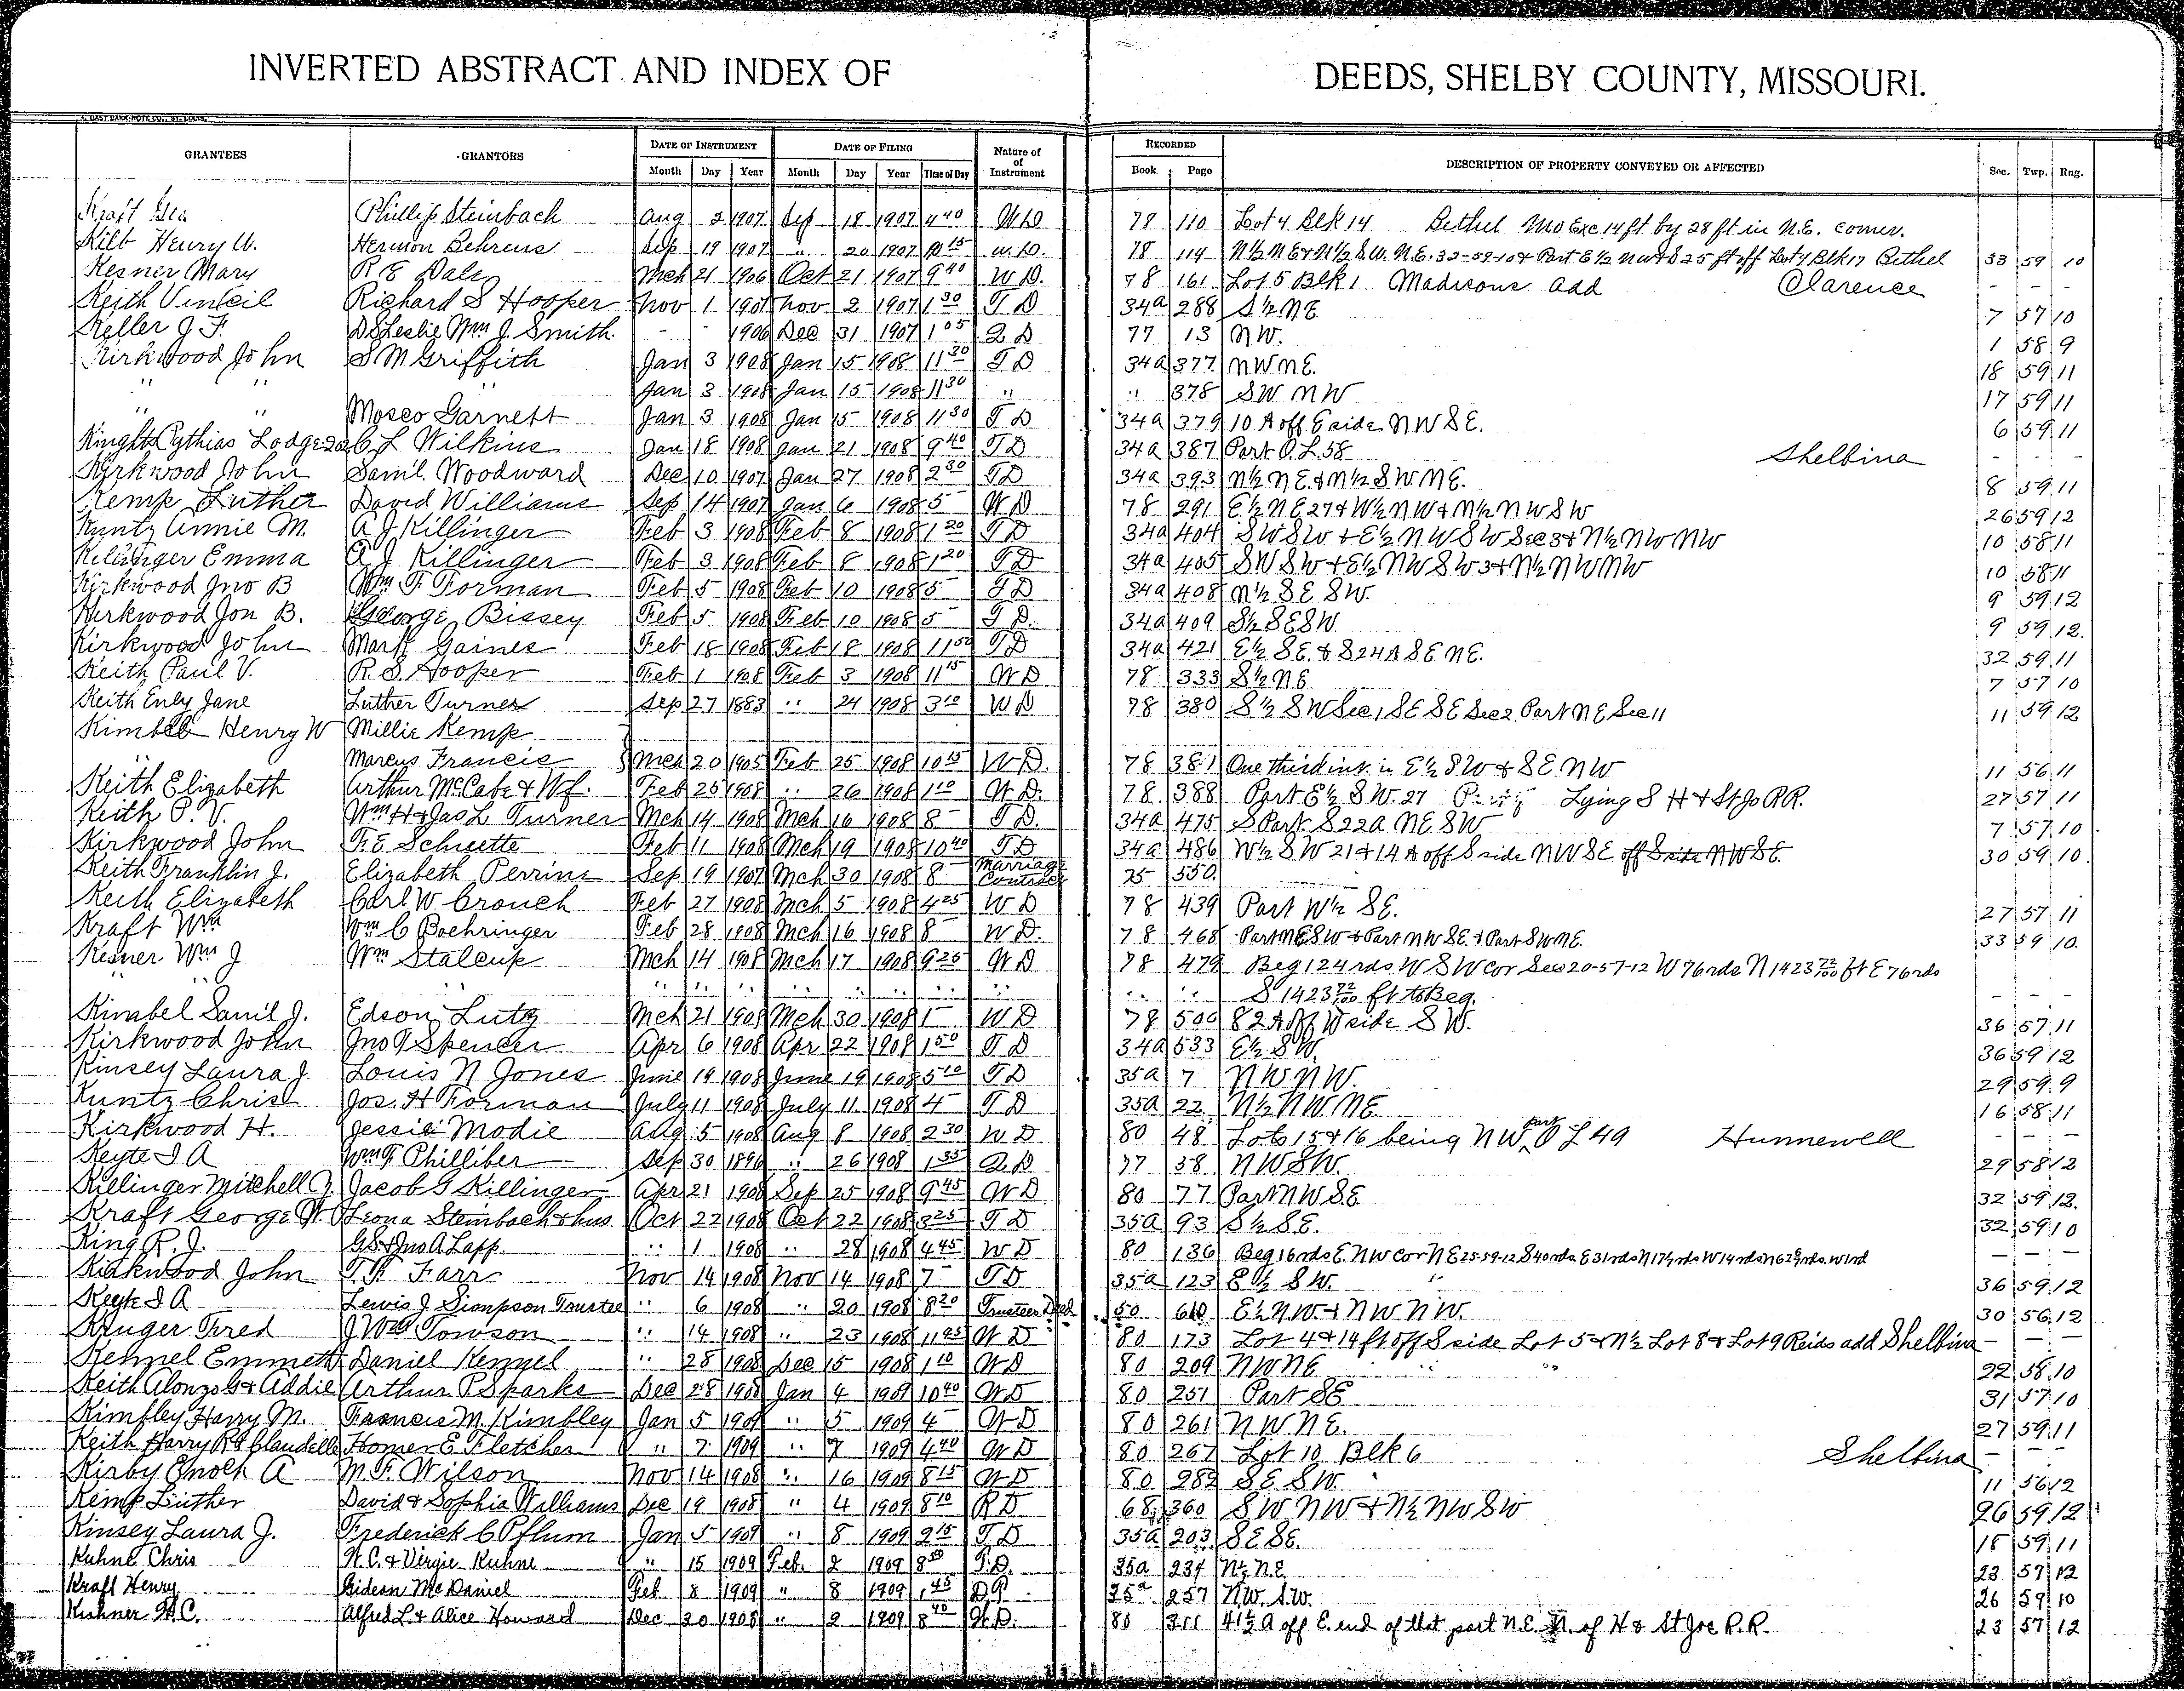 INVERTED ABSTRACT AND INDEX OF DEEDS, SHELBY COUNTY, MISSOURI.
GRANTEES GRANTORS DATE OF INSTRUMENT DATE OF FILING Nature of Instrument RECORDED DESCRIPTION OF PROPERTY CONVEYED OR AFFECTED Sec. Twp. Rng.
Month Day Year Month Day Year Time of Day Book Page
Kraft Geo Phillip Steinbach Aug 2 1907 Sep 18 1907 4 40 W D 78 110 Lot 4 Blk 14 Bethel Mo Exc 14 ft by 28 ft in N.E. corner.
Kilb Henry W. Hermon Behrens Sep 19 1907 " 20 1907 10 15 W. D. 78 114 N½ N E & N½ S W. N.E. 32-59-10 & Part E½ NW & S 25 ft off Lot 4 Blk 17 Bethel 33 59 10
Kesner Mary R E Dale Mch 21 1906 Oct 21 1907 9 40 W D. 78 161 Lot 5 Blk 1 Madisons add Clarence - - -
Keith Vinteil Richard S Hooper Nov 1 1907 Nov 2 1907 1 30 T D 34a 288 S½ NE 7 57 10
Keller J. F. D S Leslie Wm J. Smith - - 1906 Dec 31 1907 1 05 Q D 77 13 NW. 1 58 9
Kirkwood John S M Griffith Jan 3 1908 Jan 15 1908 11 30 T D 34a 377 NW NE. 18 59 11
" " " Jan 3 1908 Jan 15 1908 11 30 " " 378 SW NW 17 59 11
" " Mosco Garnett Jan 3 1908 Jan 15 1908 11 30 T D 34a 379 10 A off E side NW SE. 6 59 11
Knights Pythias Lodge C L Wilkins Jan 18 1908 Jan 21 1908 9 40 T D 34a 387 Part O.L. 58 Shelbina - - -
Kirkwood John Saml. Woodward Dec 10 1907 Jan 27 1908 2 30 T D 34a 393 N½ N E. & N½ S W N E. 8 59 11
Kemp Luther David Williams Sep 14 1907 Jan 6 1908 5 W D 78 291 E½ NE 27 & W½ NW & N½ NW SW 26 59 12
Kuntz Annie M. A J Killinger Feb 3 1908 Feb 8 1908 1 20 T D 34a 404 SW SW & E½ NW SW Sec 3 & N½ NW NW 10 58 11
Killinger Emma A J Killinger Feb 3 1908 Feb 8 1908 1 20 T D 34a 405 SW SW & E½ NW SW 3 & N½ NW NW 10 58 11
Kirkwood Jno B Wm F Forman Feb 5 1908 Feb 10 1908 5 T D 34a 408 N½ SE SW. 9 59 12
Kirkwood Jon B. George Bissey Feb 5 1908 Feb 10 1908 5 T D. 34a 409 S½ SE SW. 9 59 12.
Kirkwood John Mark Gaines Feb 18 1908 Feb 18 1908 11 50 T D 34a 421 E½ SE. & S 24 A SE NE. 32 59 11
Keith Paul V. R. S. Hooper Feb 1 1908 Feb 3 1908 11 15 W D 78 333 S½ NE 7 57 10
Keith Enly Jane Luther Turner Sep 27 1883 " 24 1908 3 10 W D 78 380 S½ SW Sec 1, SE SE Sec 2, Part NE Sec 11 11 59 12
Kimbel Henry W Millie Kemp
" Marcus Francis Mch 20 1905 Feb 25 1908 10 15 W D. 78 381 One third int. in E½ SW & SE NW 11 56 11
Keith Elizabeth Arthur McCabe & Wf. Feb 25 1908 " 26 1908 1 10 W. D. 78 388 Part E½ SW. 27 Lying S H & St Jo RR. 27 57 11
Keith P. V. Wm H & Jas L Turner Mch 14 1908 Mch 16 1908 8 T D. 34a 475 S Part S 22a NE SW 7 57 10
Kirkwood John F. E. Schuette Feb 11 1908 Mch 19 1908 10 40 T D 34a 486 W½ SW 21 & 14 A off S side NW SE off S side NW SE. 30 59 10.
Keith Franklin J. Elizabeth Perrine Sep 19 1907 Mch 30 1908 8 Marriage Contract 75 550
Keith Elizabeth Carl W. Crouch Feb 27 1908 Mch 5 1908 4 25 W D 78 439 Part W½ SE. 27 57 11
Kraft Wm Wm C Boehringer Feb 28 1908 Mch 16 1908 8 W D. 78 468 Part NE SW & Part NW SE. & Part SW NE. 33 59 10.
Kesner Wm J Wm Stalcup Mch 14 1908 Mch 17 1908 9 25 W D 78 479 Beg 124 rds W SW cor Sec 20-57-12 W 76 rds N 1423 72/100 ft E 76 rds
" " " " " " " " " " " " " S 1423 72/100 ft to Beg. - - -
Kimbel Saml J. Edson Lutz Mch 21 1908 Mch 30 1908 1 W. D 78 500 82 A off W side SW. 36 57 11
Kirkwood John Jno T Spencer Apr 6 1908 Apr 22 1908 1 50 T D 34a 533 E½ SW. 36 59 12
Kinsey Laura J Louis N Jones June 19 1908 June 19 1908 5 10 T D 35a 7 NW NW. 29 59 9
Kuntz Chris Jos. H Forman July 11 1908 July 11 1908 4 T D 35a 22 N½ NW. NE. 16 58 11
Kirkwood H. Jessie Modie Aug 5 1908 Aug 8 1908 2 30 W D 80 48 Lots 15 & 16 being NW part O L 49 Hunnewell - - -
Keyte I A Wm F Philliber Sep 30 1896 " 26 1908 1 35 Q D 77 58 NW SW. 29 58 12
Killinger Mitchell J. Jacob G Killinger Apr 21 1908 Sep 25 1908 9 45 W D 80 77 Part NW SE 32 59 12.
Kraft George W. Leona Steinbach & hus Oct 22 1908 Oct 22 1908 3 25 T D 35a 93 S½ SE. 32 59 10
King R. J. G S & Jno A. Lapp. " 1 1908 " 28 1908 4 45 W D 80 136 Beg 16 rds E. NW cor NE 25-59-12 S 40 rds E 31 rds N 17½ rds W 14 rds - - -
Kirkwood John T. P. Farr Nov 14 1908 Nov 14 1908 7 T D 35a 123 E½ SW. 36 59 12
Keyte I A Lewis J Simpson Trustee " 6 1908 " 20 1908 8 20 Trustees Deed 50 610 E½ NW & NW NW. 30 56 12
Kruger Fred J Wm Towson " 14 1908 " 23 1908 11 45 W D 80 173 Lot 4 & 14 ft off S side Lot 5 & N½ Lot 8 & Lot 9 Reids add Shelbina - - -
Kennel Emmett Daniel Kennel " 28 1908 Dec 15 1908 1 10 W D 80 209 NW NE 22 58 10
Keith Alonzo G & Addie Arthur P Sparks Dec 28 1908 Jan 4 1909 10 40 W D 80 251 Part SE 31 57 10
Kimbley Harry M. Francis M. Kimbley Jan 5 1909 " 5 1909 4 W D 80 261 NW NE. 27 59 11
Keith Harry R & Claudelle Homer E. Fletcher " 7 1909 " 7 1909 4 40 W D 80 267 Lot 10 Blk 6 Shelbina - - -
Kirby Enoch A M. F. Wilson Nov 14 1908 " 16 1909 8 15 W D 80 282 SE SW. 11 56 12
Kemp Luther David & Sophia Williams Dec 19 1908 " 4 1909 8 10 R D 68 360 SW NW & N½ NW SW 26 59 12
Kinsey Laura J. Frederick C Pflum Jan 5 1909 " 8 1909 2 15 T D 35a 203 SE SE. 18 59 11
Kuhne Chris H. C. & Virgie Kuhne " 15 1909 Feb. 2 1909 8 50 T. D. 35a 234 N½ N.E. 23 57 12
Kraft Henry Gideon McDaniel Feb 8 1909 " 8 1909 1 45 35a 257 N.W. S.W. 26 59 10
Kuhner H. C. Alfred L. & Alice Howard Dec 30 1908 " 2 1909 8 40 W. D. 80 311 41½ A off E. end of that part N.E. N. of H & St Joe R.R. 23 57 12